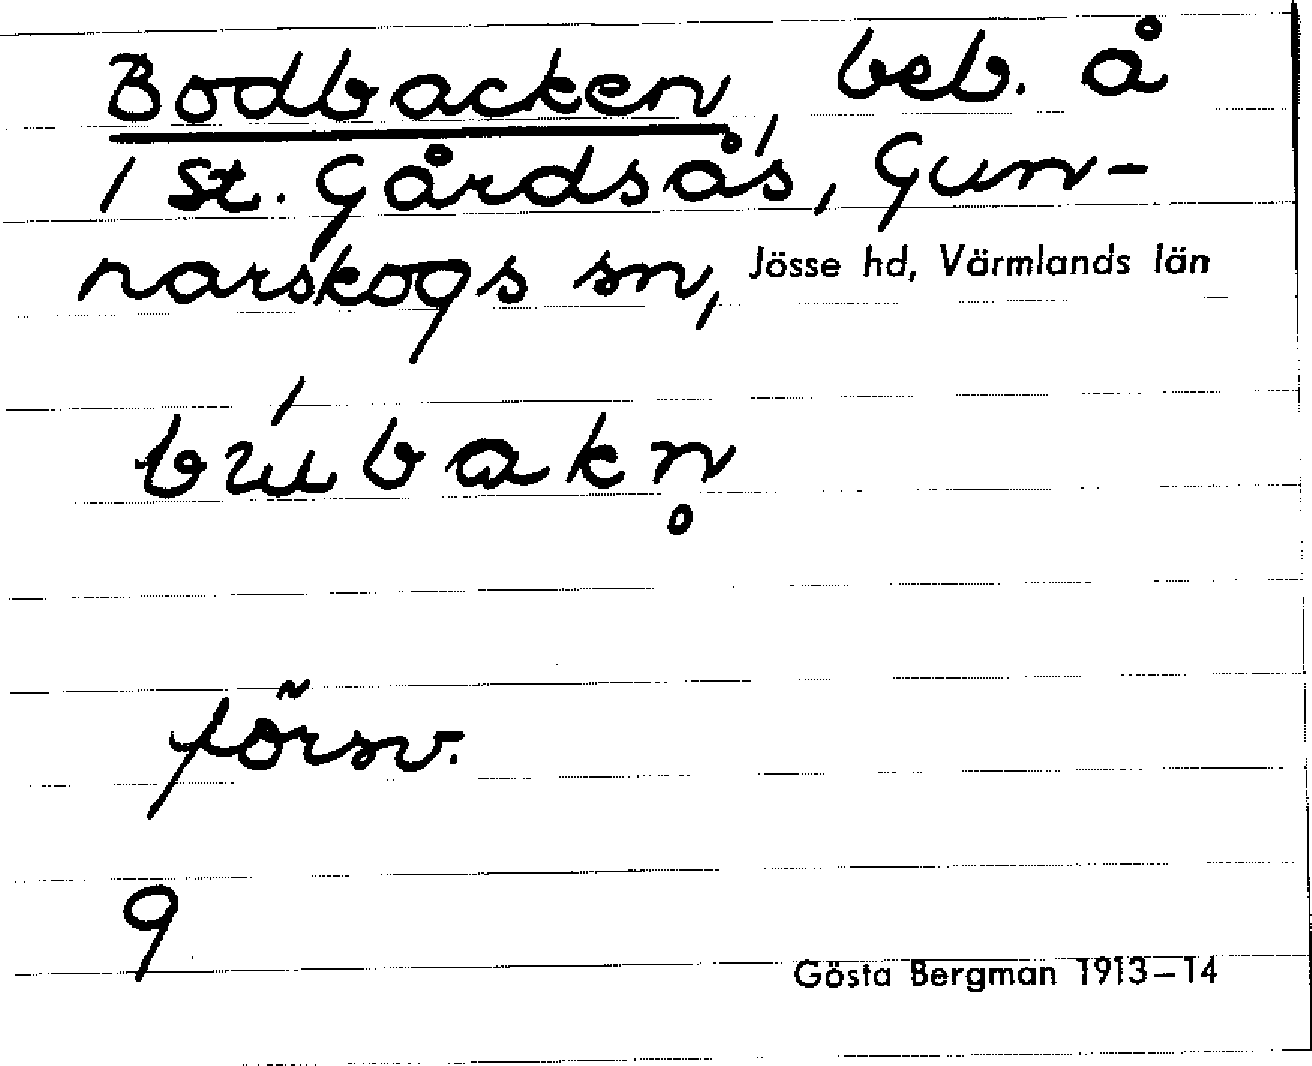 Bodbacken, beb. å
1 St. Gårdsås, Gun-
narskogs sn, Jösse hd, Värmlands län
försv.
9
Gösta Bergman 1913–14